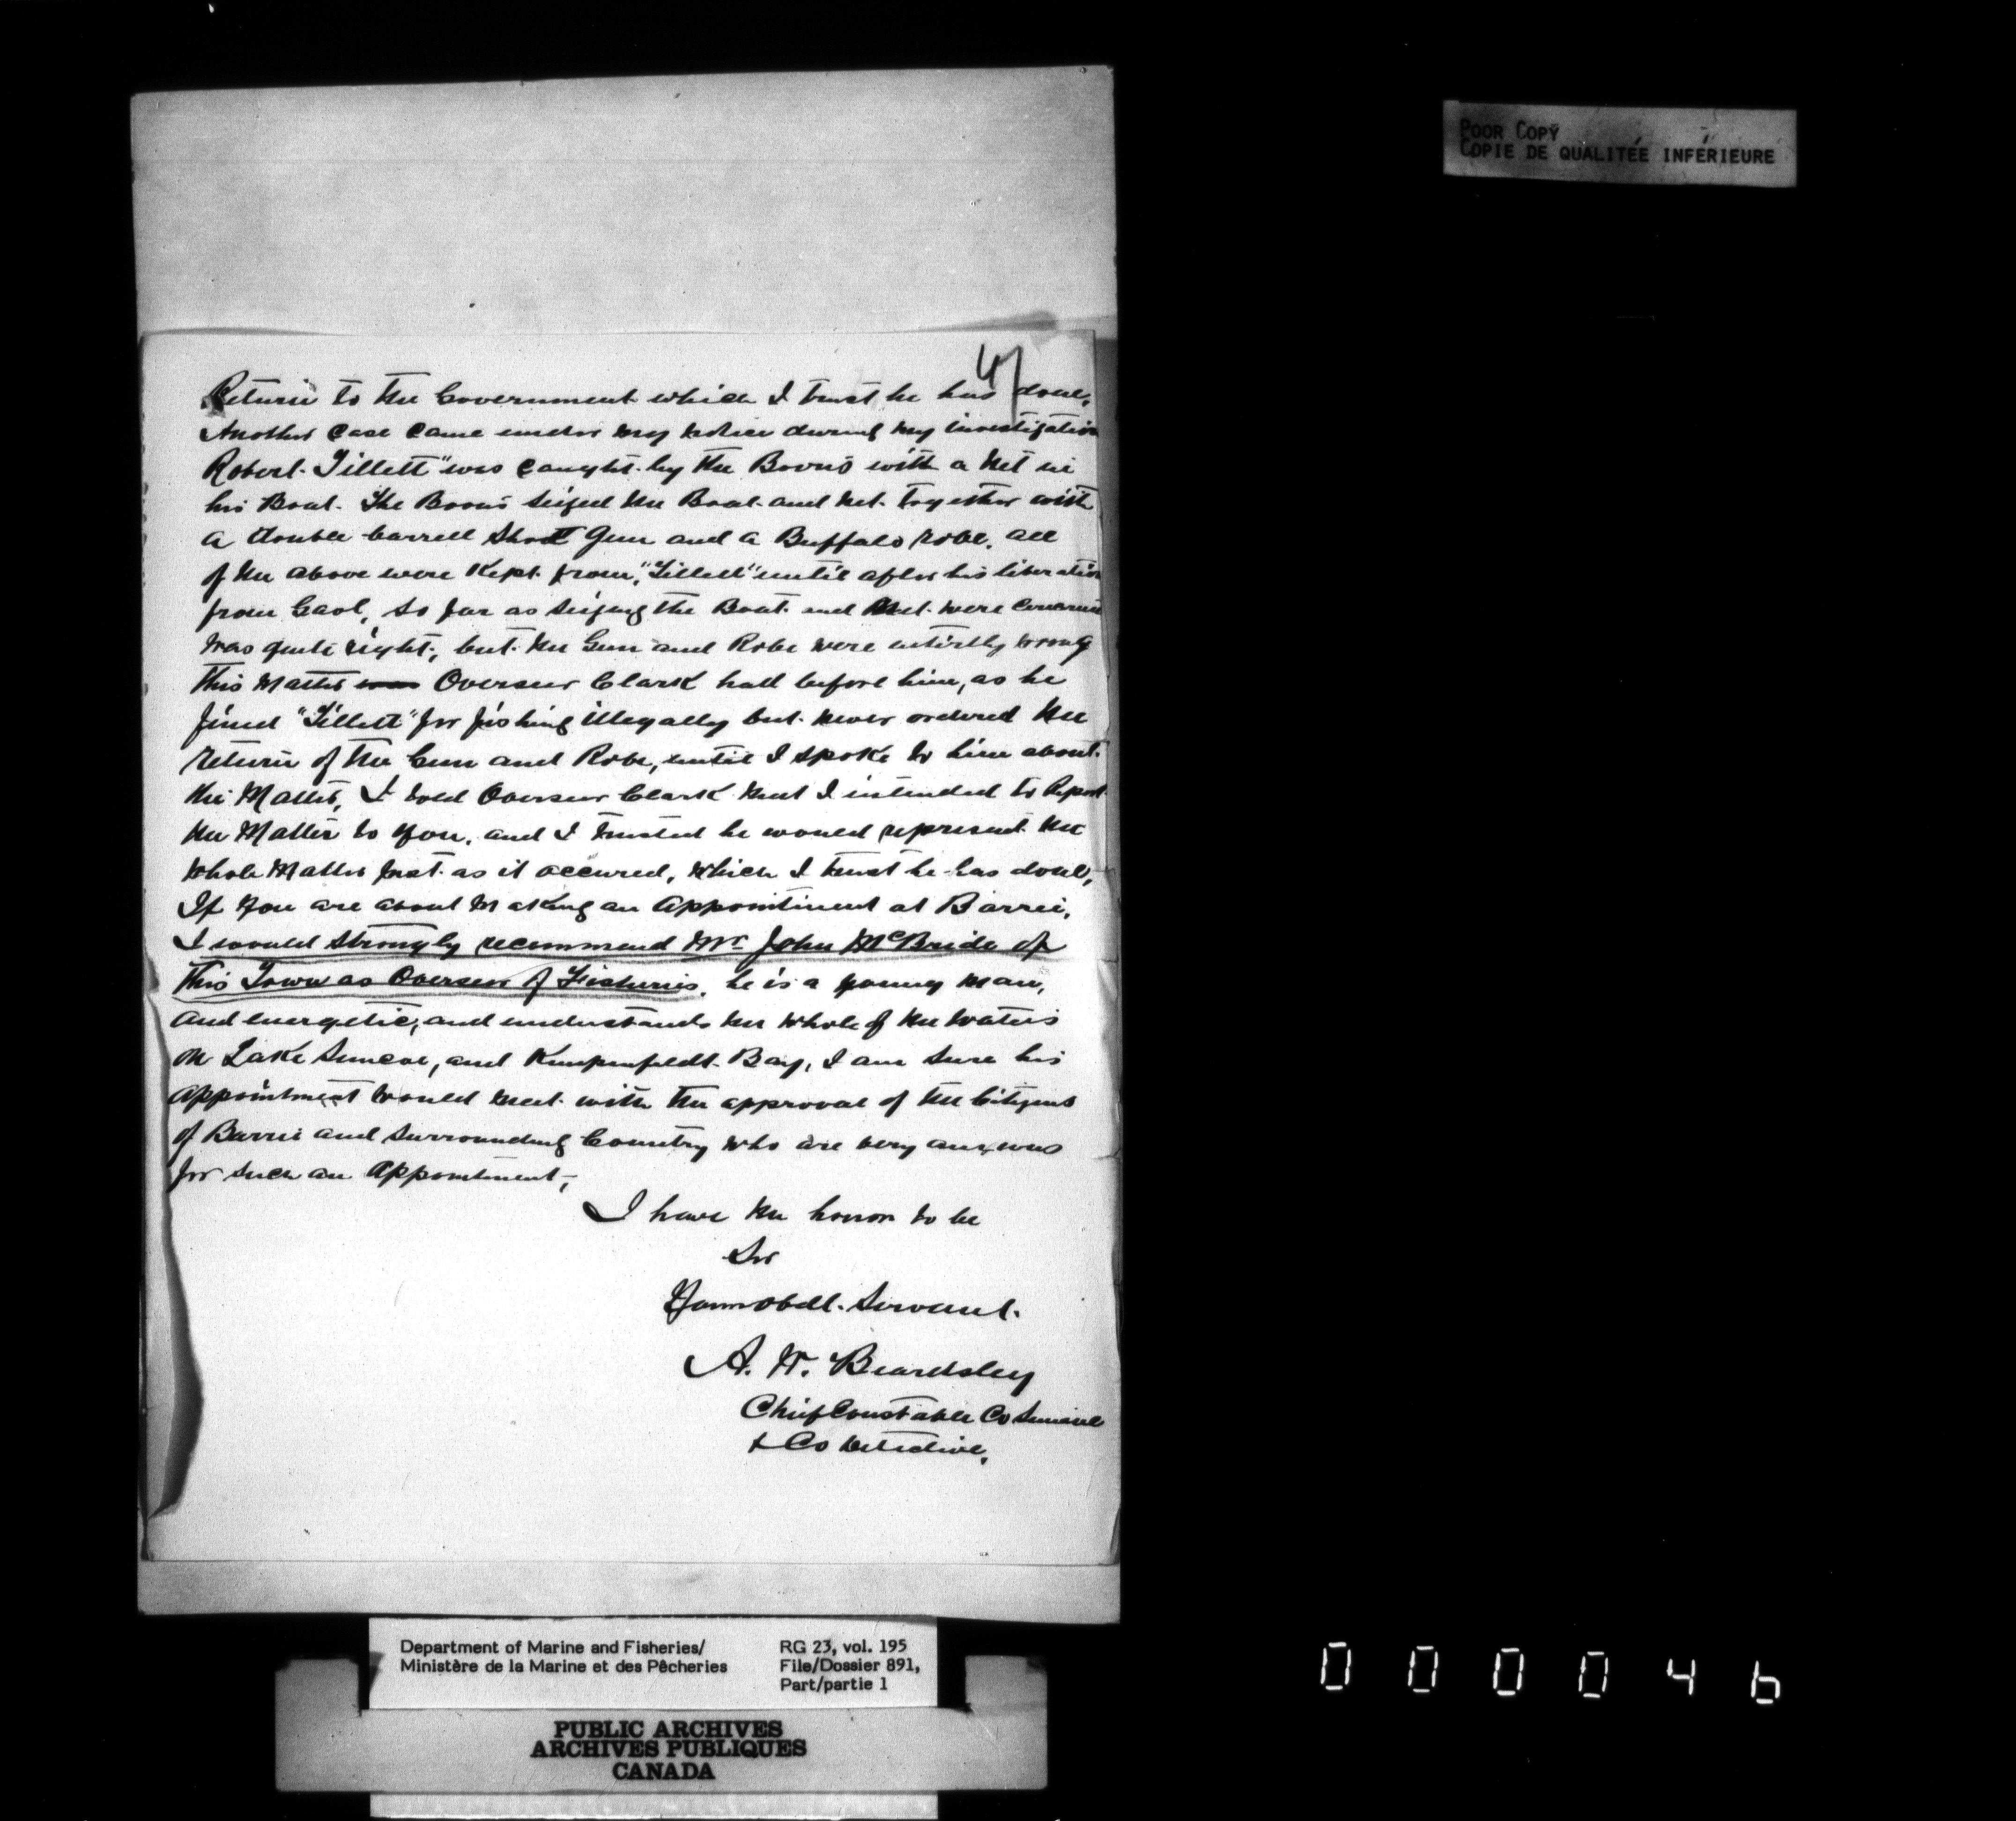 POOR COPY
COPIE DE QUALITÉE INFÉRIEURE
4
Return to the Government which I trust he has done,
Another Case Came under my notice during my investigation
Robert Tillett" was Caught by the Boons with a Net in
his Boat. The Boons seized the Boat and net together with
a double barrell Shot Gun and a Buffalo robe, all
of the above were Kept from, "Tillett" until after his liberation
from Gaol, so far as seizing the Boat and Net were Concerned
was quite right, but the Gun and Robe were entirely wrong
this matter was Overseer Clark had before him, as he
fined "Tillett" for fishing illegally but never ordered the
return of the Gun and Robe, until I spoke to him about
the Matter, I told Overseer Clark that I intended to Report
the Matter to you, and I trusted he would represent the
whole Matter just as it occured, which I trust he has done,
If you are about Making an Appointment at Barrie,
I would strongly recommend Mr John McBride of
this Town as Overseer of Fisheries, he is a young Man,
and energetic, and understands the whole of the waters
on Lake Simcoe, and Kempenfeldt Bay, I am sure his
Appointment would meet with the approval of the Citizens
of Barrie and surrounding Country who are very anxious
for such an Appointment,
I have the honor to be
Sir
Your Obdt. Servant.
A. W. Beardsley
Chief Constable Co Simcoe
& Co Detective,
Department of Marine and Fisheries/
Ministère de la Marine et des Pêcheries
RG 23, vol. 195
File/Dossier 891,
Part/partie 1
PUBLIC ARCHIVES
ARCHIVES PUBLIQUES
CANADA
000046